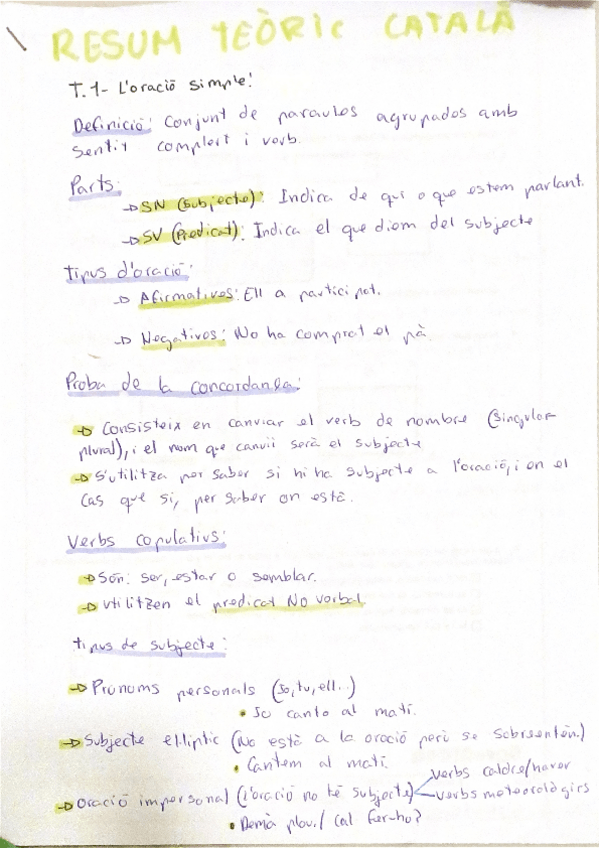 RESUM TEÒRIC CATALÀ
T.1- L'oració simple:
Definició: Conjunt de paraules agrupados amb
sentit complert i verb.
Parts:
→ SN (Subjecte): Indica de qui o que estem parlant.
→ SV (Predicat): Indica el que diem del subjecte
tipus d'oració:
→ Afirmatives: Ell a participat.
→ Negatives: No ha comprat el pà
Proba de la concordança:
→ Consisteix en canviar el verb de nombre (singular
plural), i el nom que canvii serà el subjecte
→ S'utilitza per saber si hi ha subjecte a l'oració, i en el
cas que si, per saber on està.
Verbs copulatius:
→ Són: ser, estar o semblar.
→ Utilitzen el predicat No verbal
tipus de subjecte:
→ Pronoms personals (Jo, tu, ell..)
• Jo canto al matí.
→ Subjecte el.líptic (No està a la oració però se sobreentén.)
• Cantem al matí
→ Oració impersonal (l'oració no té subjecte) verbs caldre/haver
verbs meteorològics
• Demà plou./ Cal fer-ho?